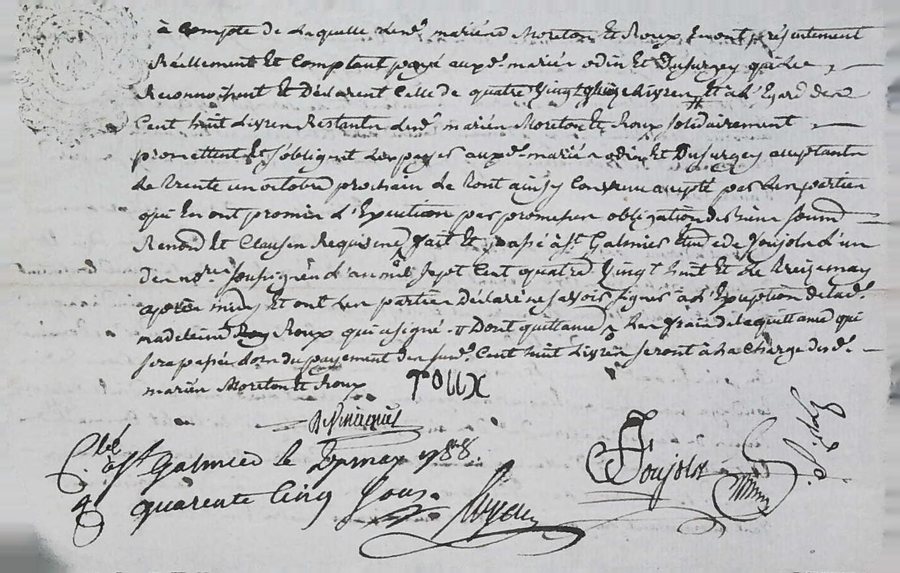 à Compte de Laquelle Les d. mariés Moreton Et Roux En ont présentement
Réellement Et Comptant payé aux d. mariés odin Et Dusurgey qui Le
Reconnoissent Et Déclarent Celle de quatre Vingt Livres Et à L'Egard des
Cent huit Livres Restantes Les d. mariés Moreton Et Roux solidairement
promettent Et s'obligent Les payer aux d. mariés odin Et Dusurgey
Le trente un octobre prochain de tout ainsy Convenu accepté par Les parties
qui En ont promis L'Execution par promesses obligation de biens soumis
Renon Et Clauses Requises fait Et passé à St Galmier Etude de Joujols L'un
des no.res soussignés L'an mil sept Cent quatre Vingt huit Et Le treize may
après midy Et ont Les parties Déclaré ne savoir signer à L'Exception de lad.
madeleine Roux qui a signé Dont quittance Les frais de la quittance qui
sera passée Lors du payement des sus d. Cent huit Livres seront à La Charge des d.
mariés Moreton Et Roux
roux
à St Galmier le may 1788.
quarente Cinq sous
Joujols